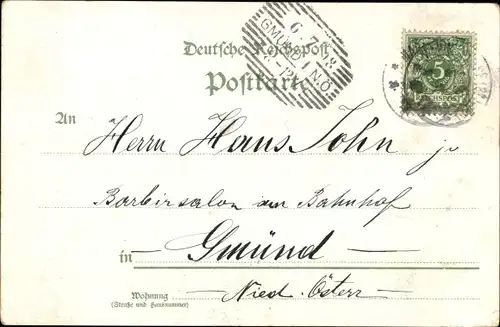 Deutsche Reichspost
Postkarte
6 7 8
GMÜND N.Ö
5
REICHSPOST
An Herrn Hans John jr
Barbirsalon am Bahnhof
in Gmünd
Wohnung
(Straße und Hausnummer)
Nied. Österr